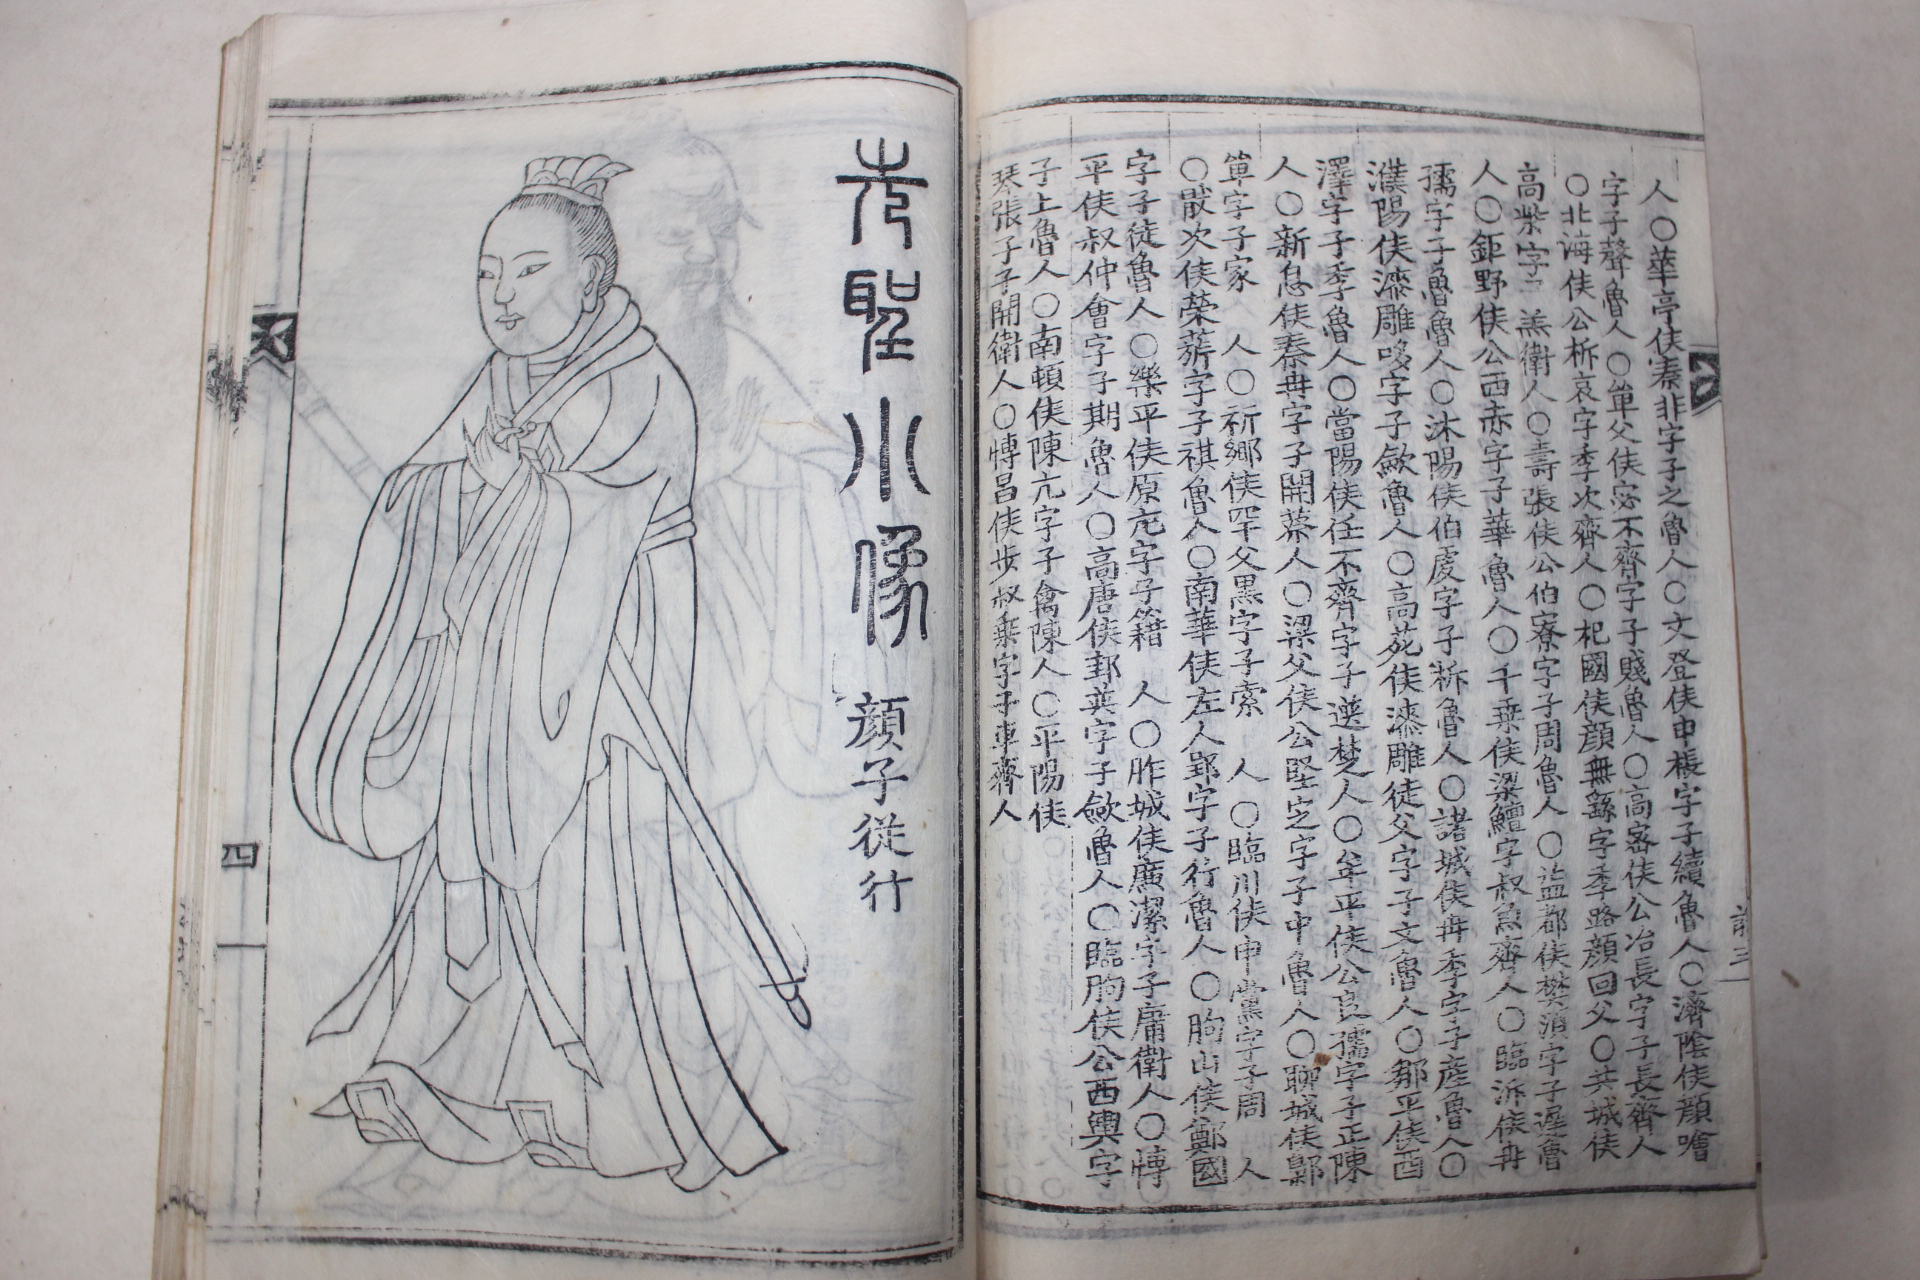 人○華亭侯秦非字子之魯人○文登侯申棖字子續魯人○濟陰侯顔噲
字子聲魯人○單父侯宓不齊字子賤魯人○高密侯公冶長字子長齊人
○北海侯公析哀字季次齊人○杞國侯顔無繇字季路顔回父○共城侯
高柴字子羔衛人○壽張侯公伯寮字子周魯人○益都侯樊須字子遲魯
人○鉅野侯公西赤字子華魯人○千乗侯梁鱣字叔魚齊人○臨沂侯冉
孺字子魯魯人○沐陽侯伯虔字子析魯人○諸城侯冉季字子産魯人○
濮陽侯漆雕哆字子歛魯人○高苑侯漆雕徒父字子文魯人○鄒平侯酉
澤字子季魯人○當陽侯任不齊字子選楚人○牟平侯公良孺字子正陳
人○新息侯秦冉字子開蔡人○梁父侯公堅㝎字子中魯人○聊城侯鄡
單字子家 人○祈鄉侯罕父黒字子索 人○臨川侯申黨字子周 人
○厭次侯榮旂字子祺魯人○南華侯左人郢字子行魯人○朐山侯鄭國
字子徒魯人○樂平侯原亢字子籍 人○胙城侯廉潔字子庸衛人○博
平侯叔仲會字子期魯人○高唐侯邽巽字子歛魯人○臨朐侯公西輿字
子上魯人○南頓侯陳亢字子禽陳人○平陽侯
琴張字子開衛人○博昌侯步叔乗字子車齊人
前三
先聖小像
顔子從行
四